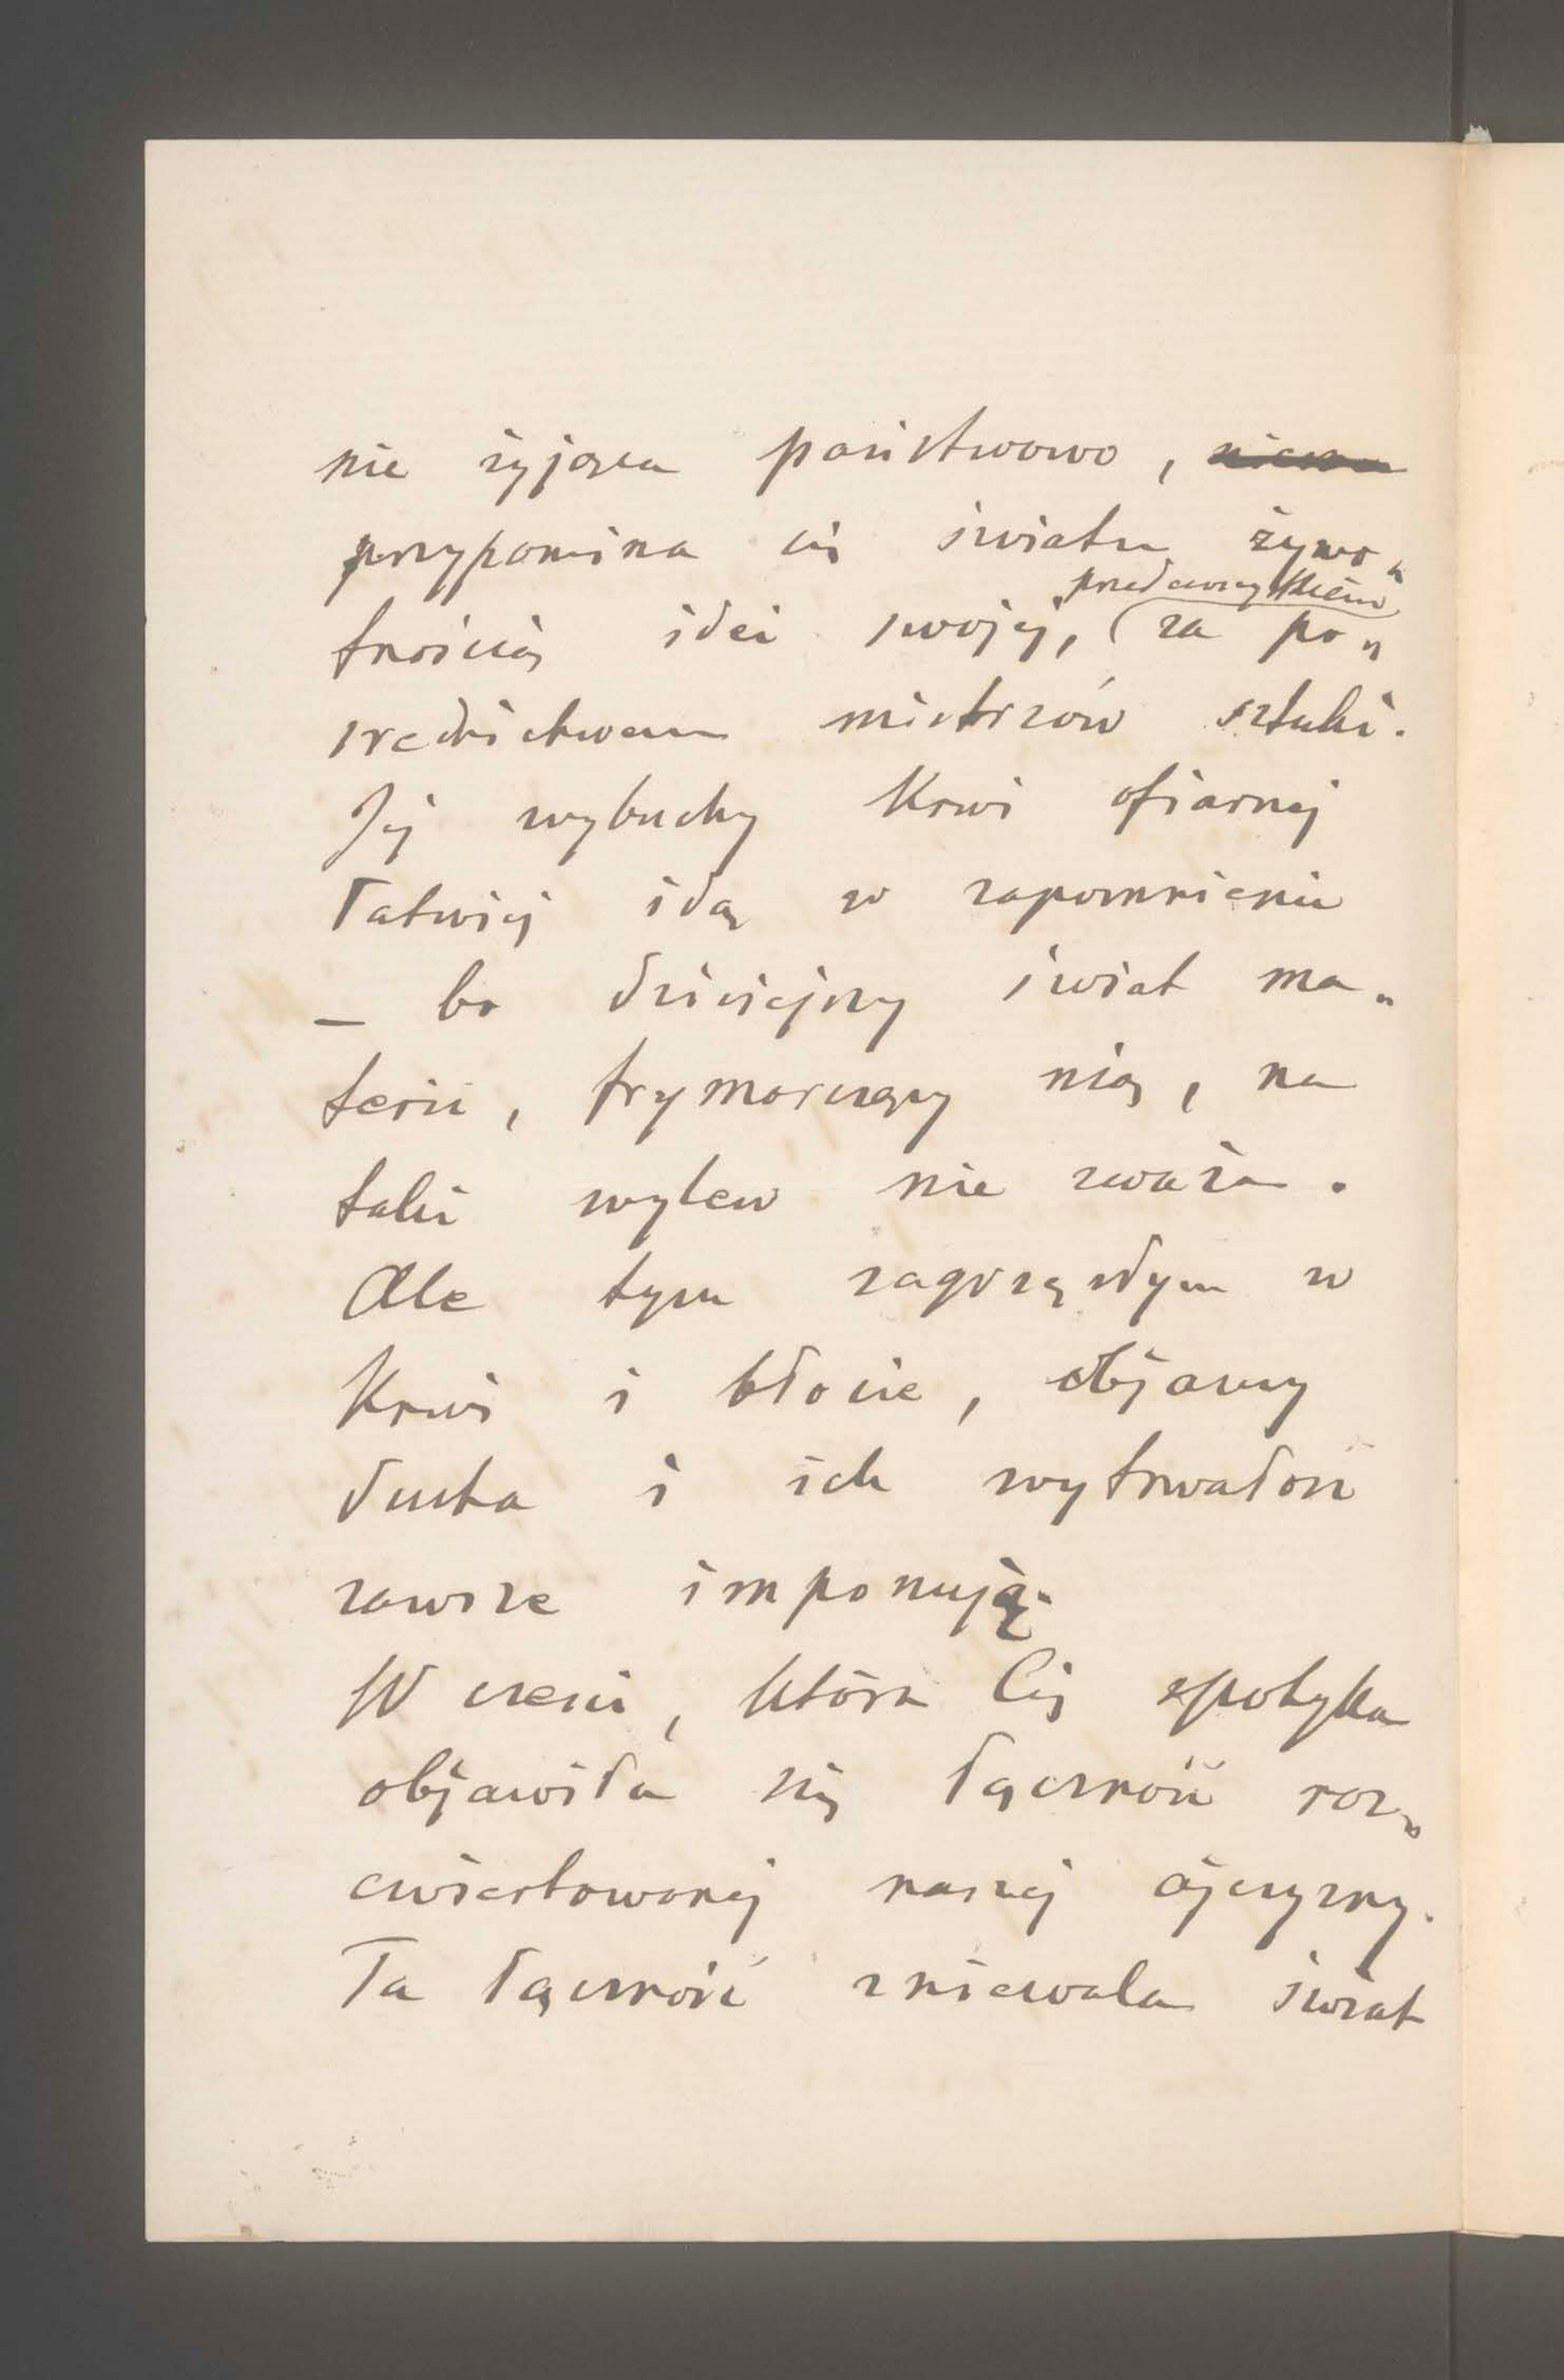 nie żyjąca państwowo,
przypomina się światu żywo„
tnością idei swojej, (przedewszystkiem) za po„
srednictwem mistrzów sztuki.
Jej wybuchy krwi ofiarnej
łatwiej idą w zapomnienie
– bo dzisiejszy świat ma„
terii, frymarczący nią, na
taki wylew nie zważa.
Ale tym zagrzązłym w
krwi i błocie, objawy
ducha i ich wytrwałość
zawsze imponują.
W czci, która Cię spotyka
objawiła się łączność roz„
ćwiertowanej naszej ojczyzny.
Ta łączność zniewala świat